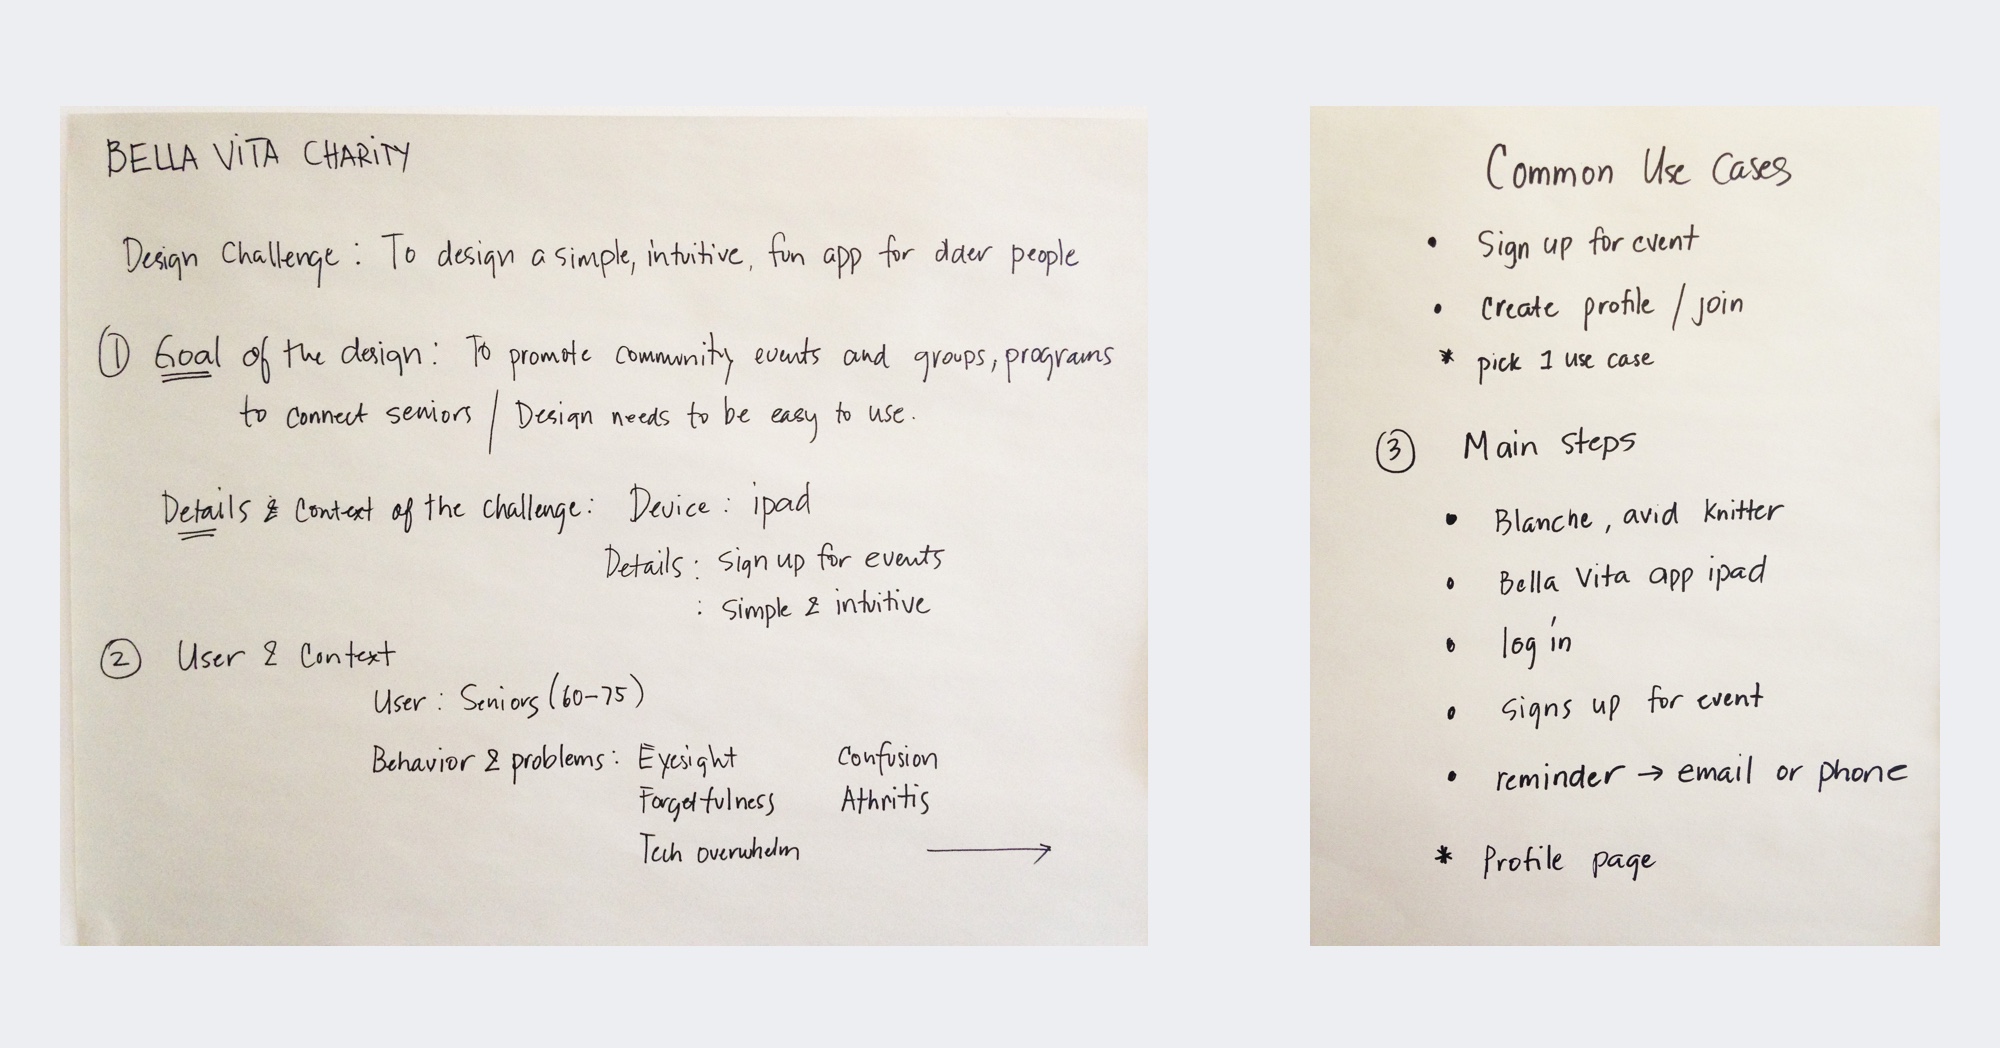 BELLA VITA CHARITY
Design Challenge : To design a simple, intuitive, fun app for older people
① Goal of the design : To promote community events and groups, programs
to connect seniors / Design needs to be easy to use.
Details & Context of the challenge : Device : ipad
Details : Sign up for events
: Simple & intuitive
② User & Context
User : Seniors (60-75)
Behavior & problems : Eyesight Confusion
Forgetfulness Athritis
Tech overwhelm →
Common Use Cases
• Sign up for event
• Create profile / join
* pick 1 use case
③ Main steps
• Blanche, avid knitter
• Bella Vita app ipad
• log in
• signs up for event
• reminder → email or phone
* Profile page